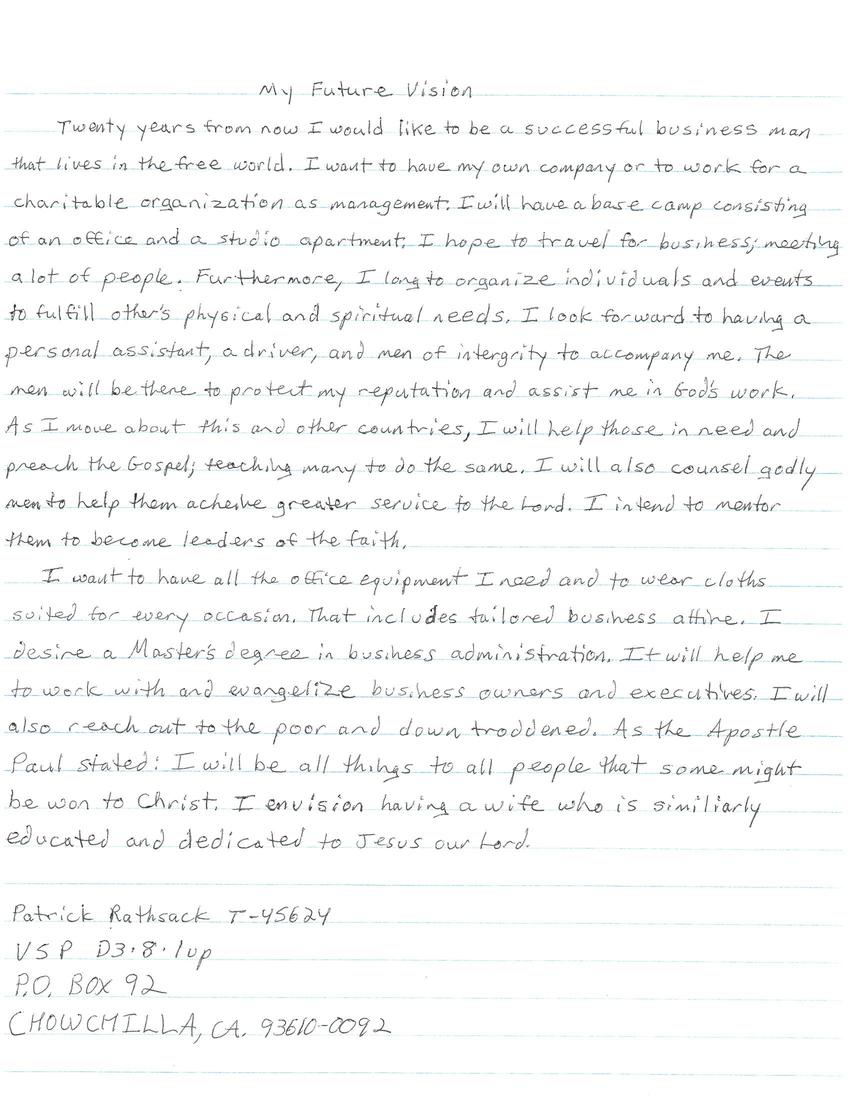 My Future Vision
Twenty years from now I would like to be a successful business man
that lives in the free world. I want to have my own company or to work for a
charitable organization as management. I will have a base camp consisting
of an office and a studio apartment. I hope to travel for business; meeting
a lot of people. Furthermore, I long to organize individuals and events
to fulfill other's physical and spiritual needs. I look forward to having a
personal assistant, a driver, and men of intergrity to accompany me. The
men will be there to protect my reputation and assist me in God's work.
As I move about this and other countries, I will help those in need and
preach the Gospel; teaching many to do the same. I will also counsel godly
men to help them acheive greater service to the Lord. I intend to mentor
them to become leaders of the faith.
I want to have all the office equipment I need and to wear cloths
suited for every occasion. That includes tailored business attire. I
desire a Master's degree in business administration. It will help me
to work with and evangelize business owners and executives. I will
also reach out to the poor and down troddened. As the Apostle
Paul stated: I will be all things to all people that some might
be won to Christ. I envision having a wife who is similiarly
educated and dedicated to Jesus our Lord.
Patrick Rathsack T-45624
VSP D3.8.1up
P.O. BOX 92
CHOWCHILLA, CA. 93610-0092